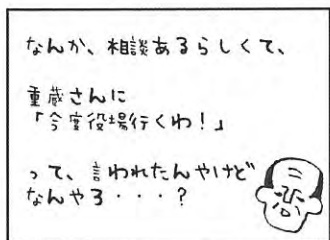 なんか、相談あるらしくて、
重蔵さんに
「今度役場行くわ！」
って、言われたんやけど
なんやろ・・・？